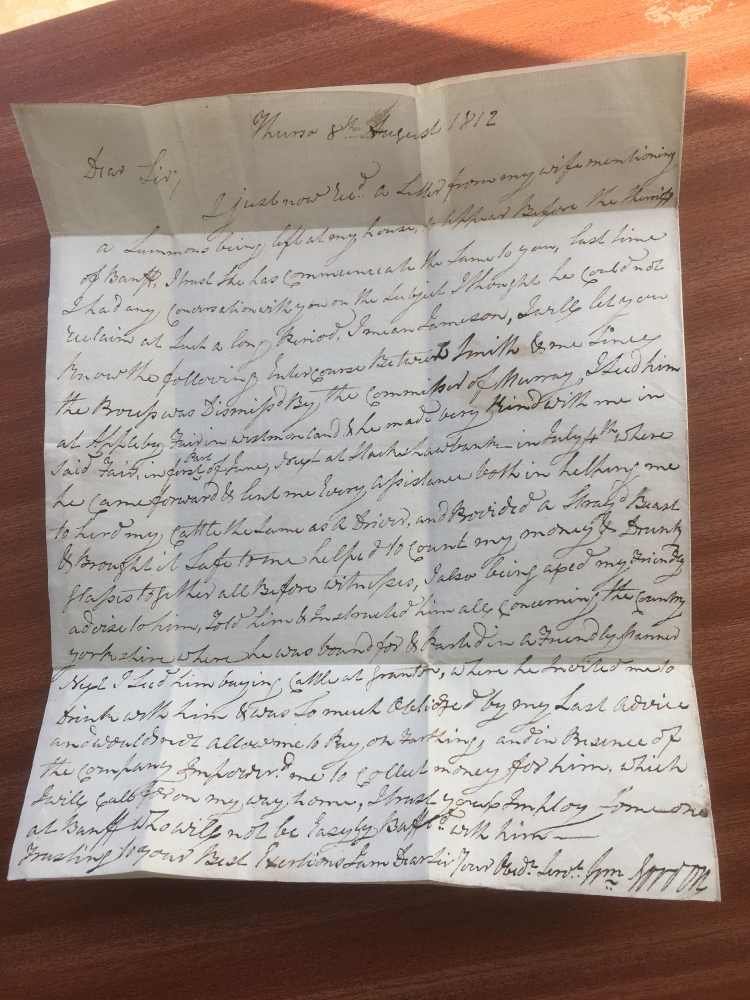 Thurso 8th August 1812
Dear Sir,
I just now Recd. a Letter from my wife mentioning
a Summons being left at my house, to appear Before the Sherriff
of Banff, I trust She has Communicate the Same to you, last time
I had any Conversation with you on the Subject I thought he Could not
Reclaim at Such a long Period, I mean Jameson, I will let you
know the following Intercourse Between Smith & me Since
the Process was Dismissd By the Commissar of Murray, I Seed him
at Appleby Fair in westmorland & he made very Kind with me in
Said Fair, in first Part of June, Next at Stackshawbank in July 4th where
he Came forward & lent me Every assistance both in helping me
to herd my Cattle the Same as a Driver, and Provided a Stray'd Beast
& Brought it Safe to me helped to Count my money & Drunk
glasses together all Before witnesses, I also being axed my Friendly
advise to him, Told him & Instructed him all Concerning the Country
yorkshire where he was bound for & Parted in a Friendly Manner
Next I Seed him buying Cattle at Grantor, where he Invited me to
Drink with him & was So much Oblidged by my Last advice
and would not allow me to Pay on Farthing, and in Presence of
the Company Impower.d me to Collect money for him, which
I will Call for on my way home, I trust youl Imploy Some one
at Banff who will not be Easyly Baffld. with him
Trusting to your Best Exertions I am Dear Sir Your Obedt. Servt. Wm Gordon